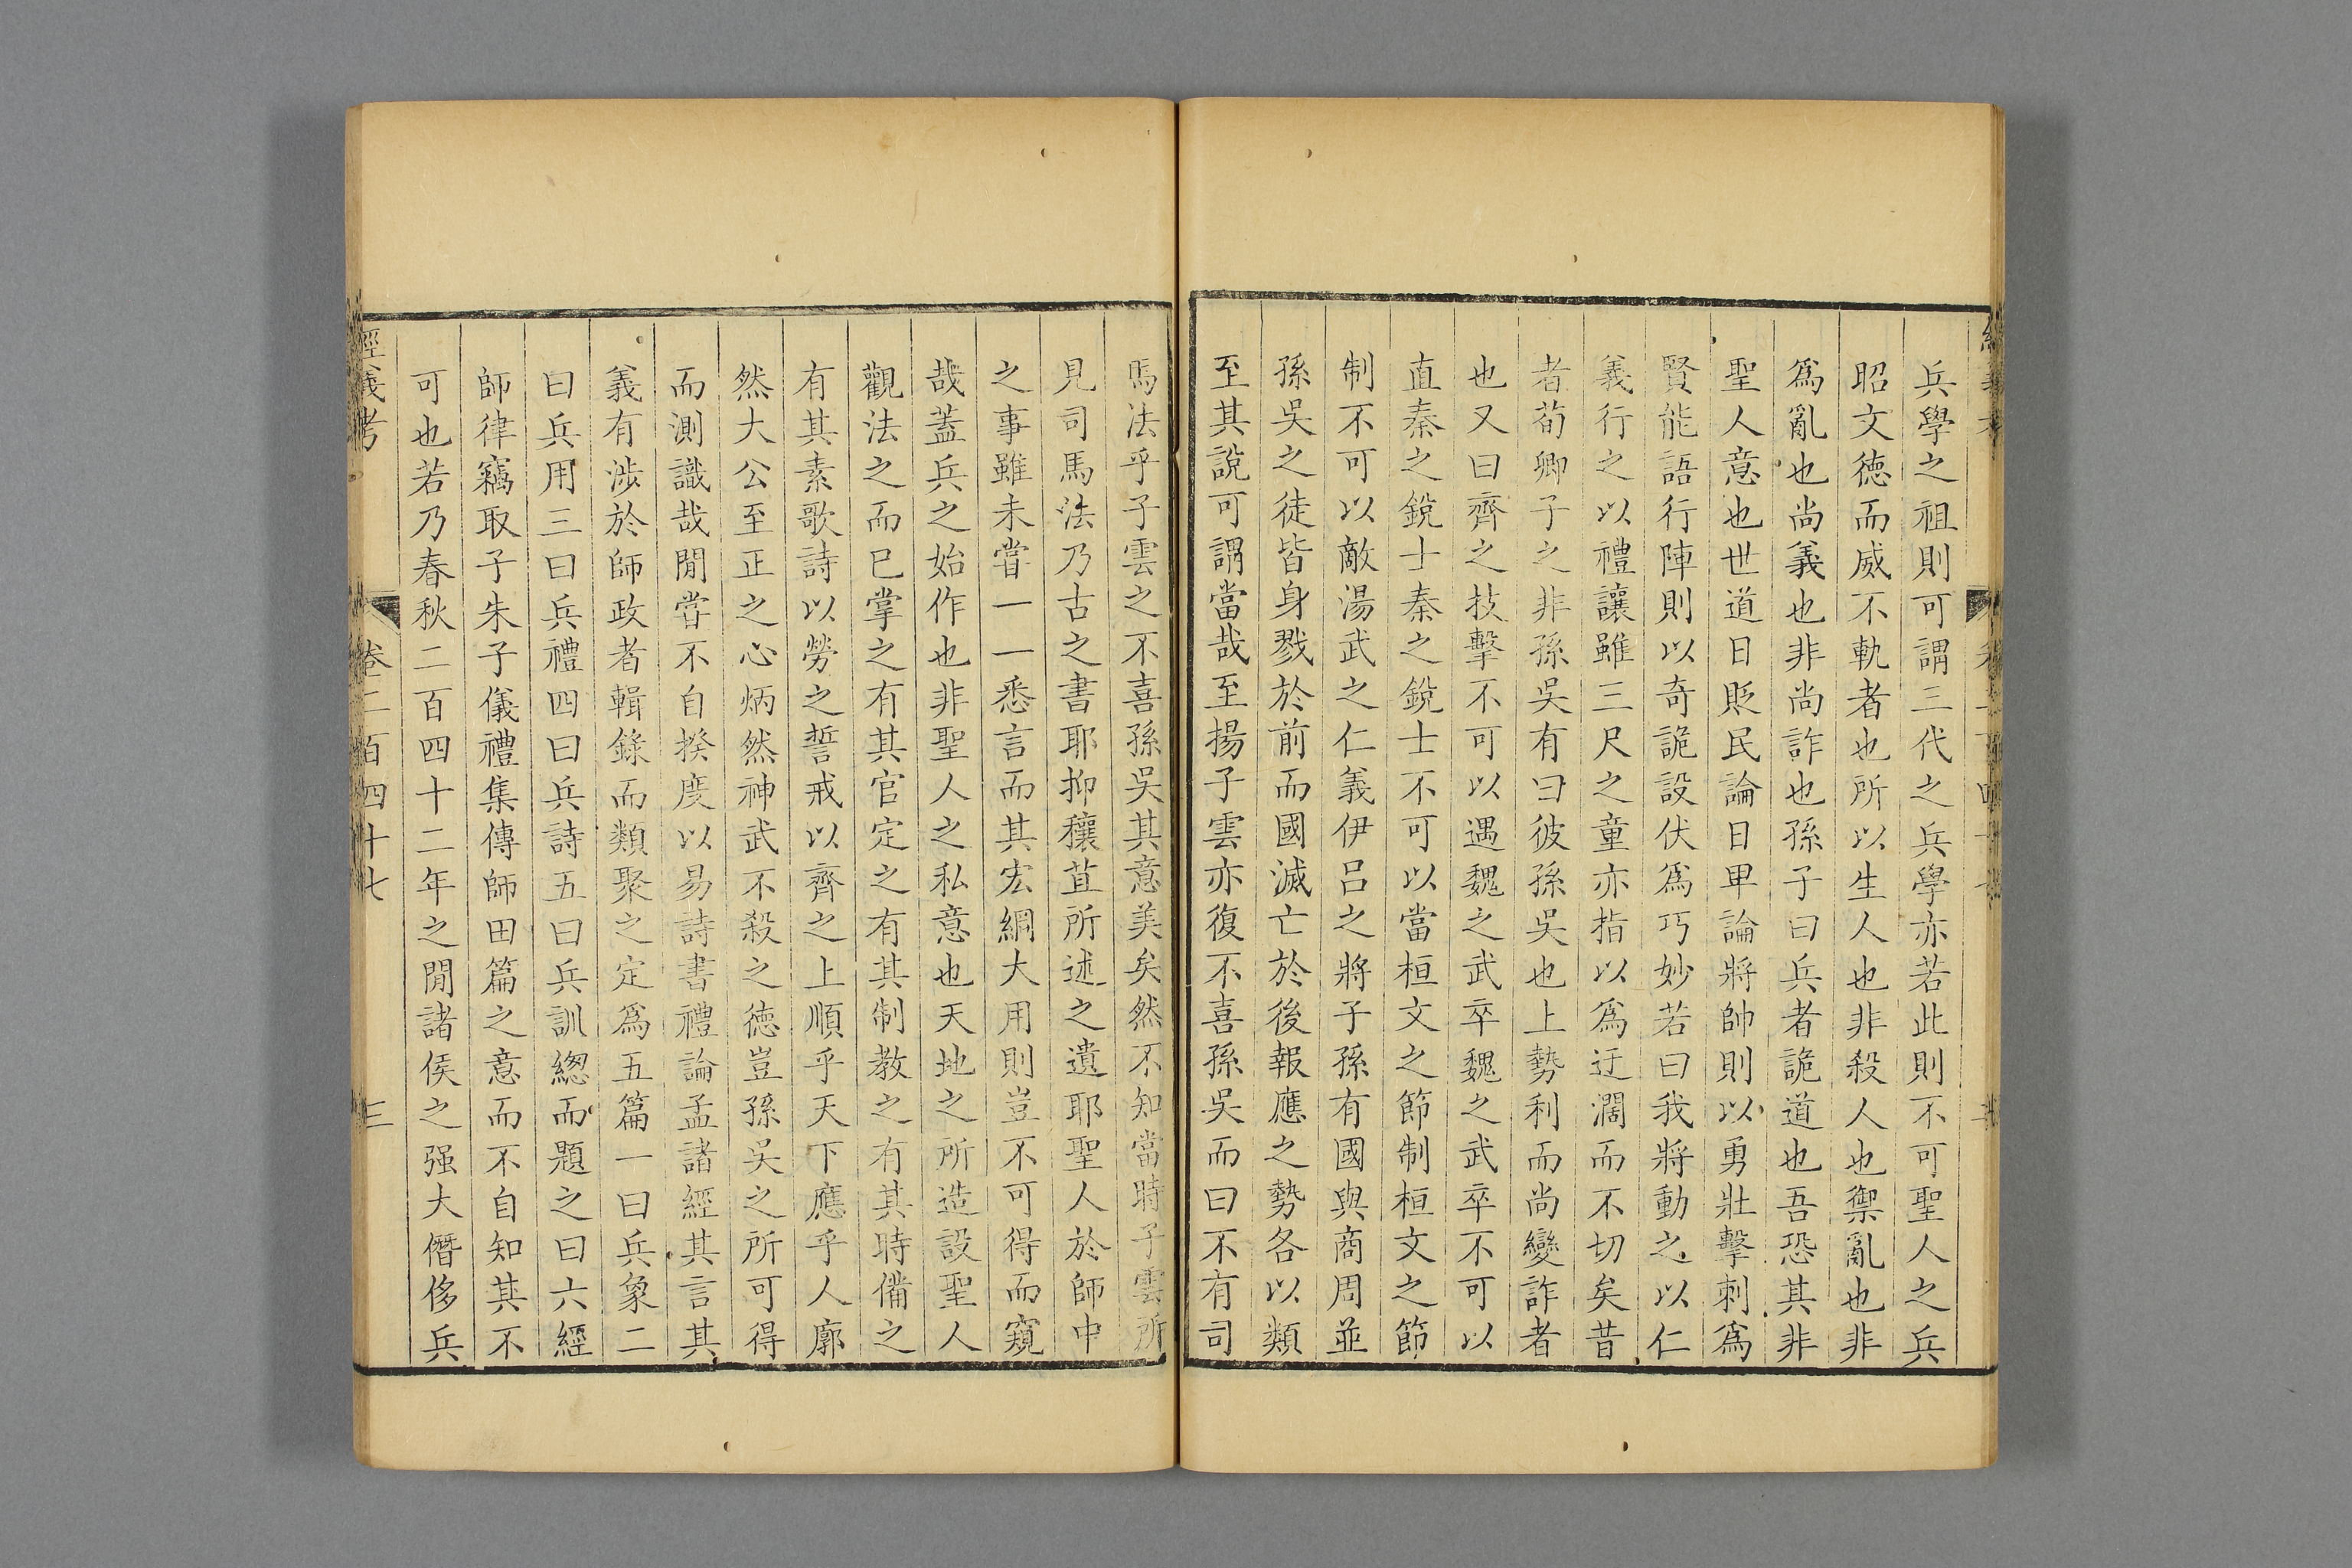 兵學之祖則可謂三代之兵學亦若此則不可聖人之兵
昭文德而威不軌者也所以生人也非殺人也禦亂也非
爲亂也尚義也非尚詐也孫子曰兵者詭道也吾恐其非
聖人意也世道日貶民論日卑論將帥則以勇壯擊刺爲
賢能語行陣則以奇詭設伏爲巧妙若曰我將動之以仁
義行之以禮讓雖三尺之童亦指以爲迂濶而不切矣昔
者荀卿子之非孫吳有曰彼孫吳也上勢利而尚變詐者
也又曰齊之技擊不可以遇魏之武卒魏之武卒不可以
直秦之銳士秦之銳士不可以當桓文之節制桓文之節
制不可以敵湯武之仁義伊呂之將子孫有國與商周並
孫吳之徒皆身戮於前而國滅亡於後報應之勢各以類
至其說可謂當哉至揚子雲亦復不喜孫吳而曰不有司
馬法乎子雲之不喜孫吳其意美矣然不知當時子雲所
見司馬法乃古之書耶抑穰苴所述之遺耶聖人於師中
之事雖未嘗一一悉言而其宏綱大用則豈不可得而窺
哉蓋兵之始作也非聖人之私意也天地之所造設聖人
觀法之而已掌之有其官定之有其制教之有其時備之
有其素歌詩以勞之誓戒以齊之上順乎天下應乎人廓
然大公至正之心炳然神武不殺之德豈孫吳之所可得
而測識哉閒嘗不自揆度以易詩書禮論孟諸經其言其
義有涉於師政者輯錄而類聚之定爲五篇一曰兵象二
曰兵用三曰兵禮四曰兵詩五曰兵訓緫而題之曰六經
師律竊取子朱子儀禮集傳師田篇之意而不自知其不
可也若乃春秋二百四十二年之閒諸侯之强大僭侈兵
經義考 卷二百四十七 三